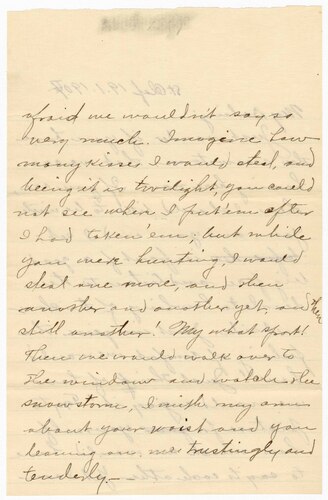 afraid we wouldn't say so
very much. Imagine how
many kisses I would steal, and
being it is twilight, you could
not see where I put 'em after
I had taken 'em; but while
you were hunting, I would
steal one more, and then
another and another yet, and then
still another! My what sport!
Then we would walk over to
the window and watch the
snowstorm, I with my arm
about your waist and you
leaning on me trustingly and
tenderly.—